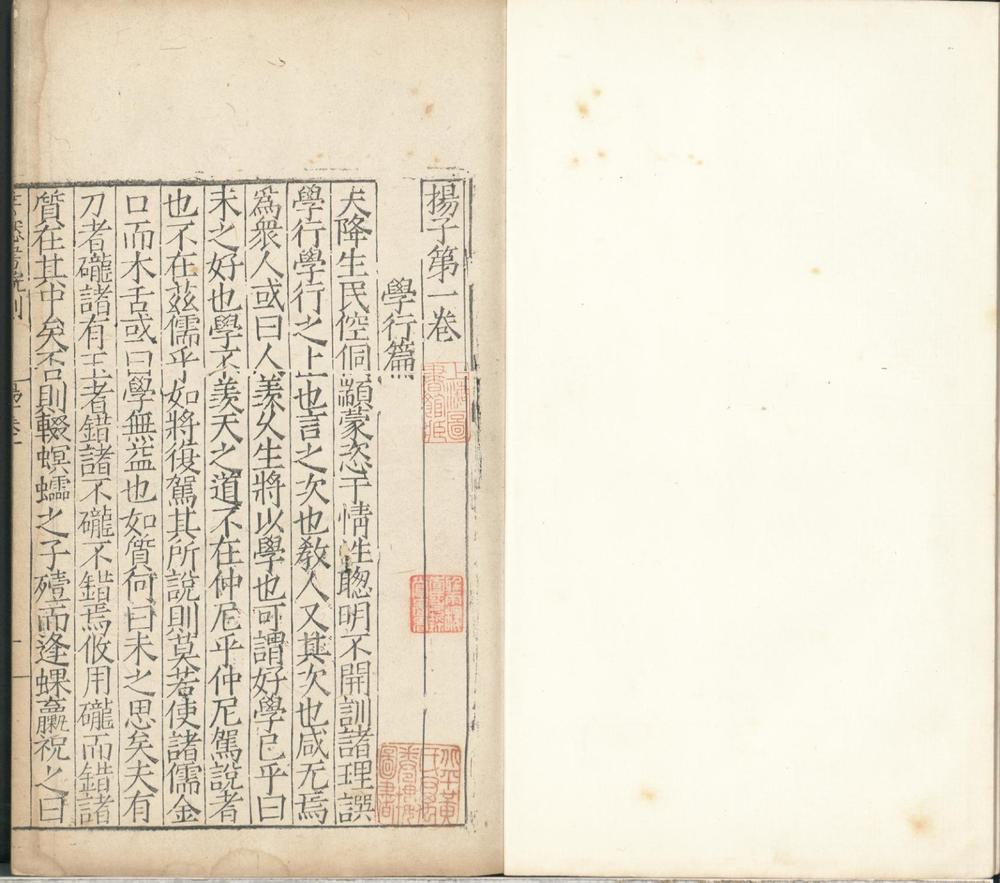 揚子第一卷
學行篇
天降生民倥侗顓蒙恣于情性聰明不開訓諸理譔
學行學行之上也言之次也教人又其次也咸无焉
爲衆人或曰人羨久生將以學也可謂好學已乎曰
未之好也學不羨天之道不在仲尼乎仲尼駕說者
也不在茲儒乎如將復駕其所說則莫若使諸儒金
口而木舌或曰學無益也如質何曰未之思矣夫有
刀者礲諸有玉者錯諸不礲不錯焉攸用礲而錯諸
質在其中矣否則輟螟蠕之子殪而逢蜾蠃祝之曰
上海圖書館藏